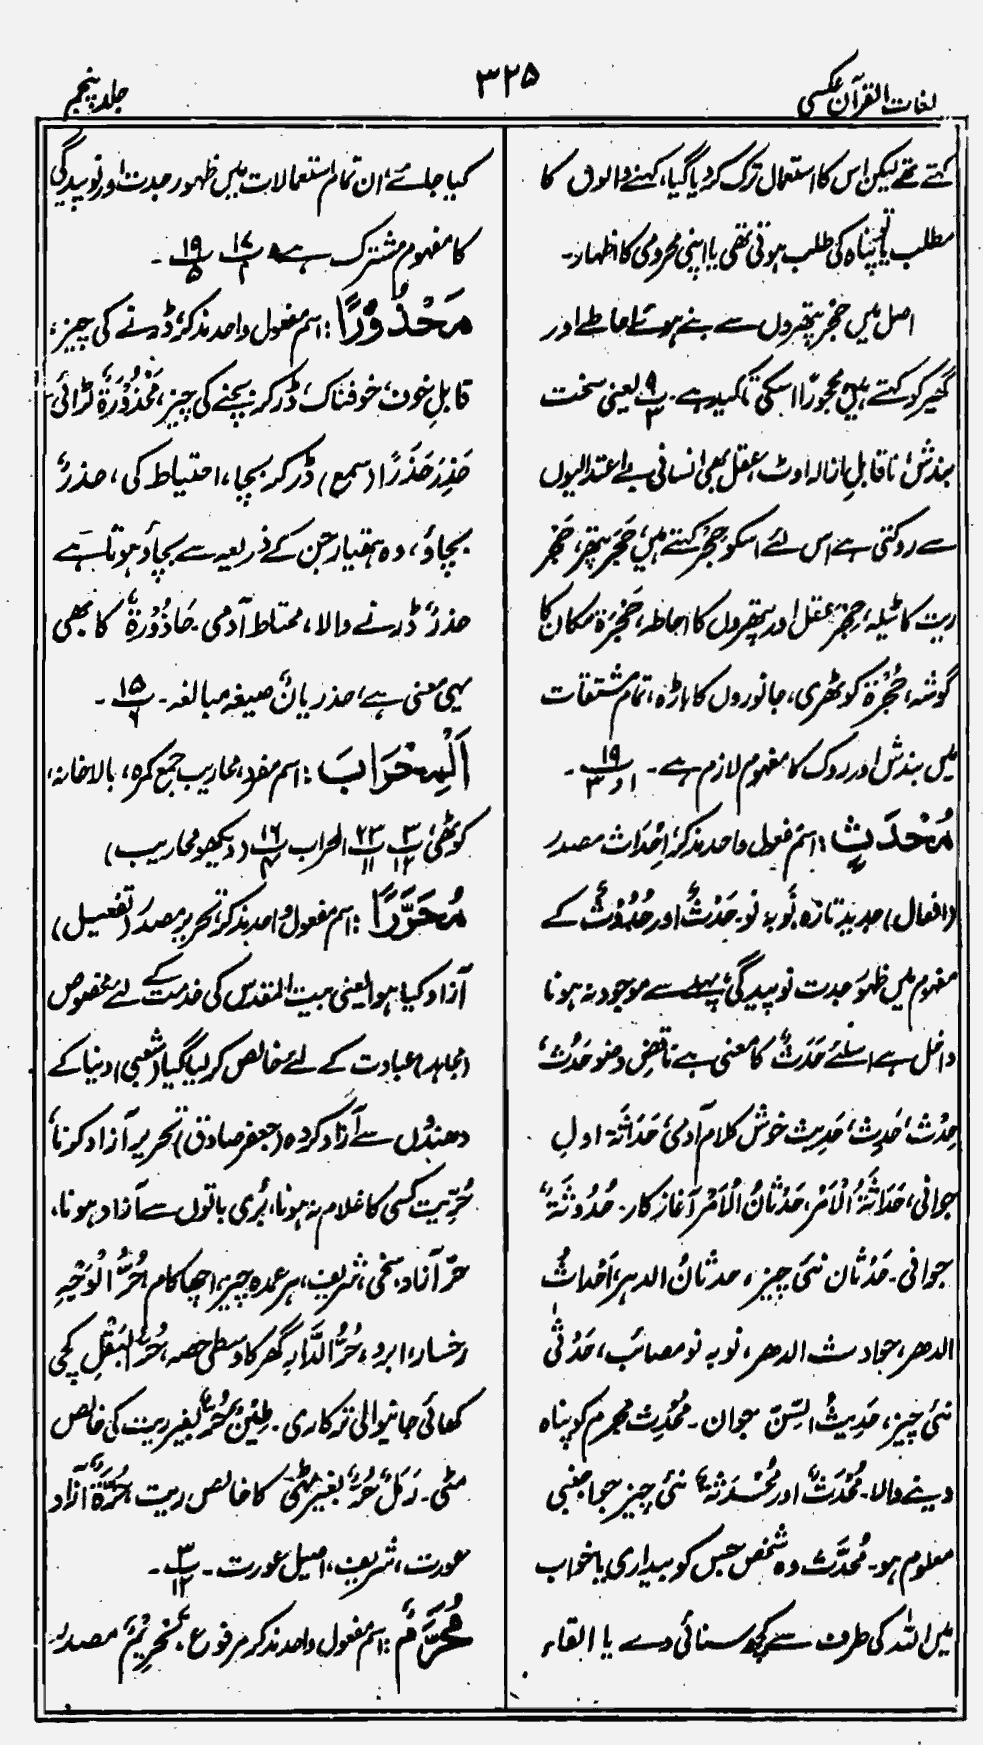 لغات القرآن عکسی
۳۲۵
جلد پنجم
کہتے تھے لیکن اس کا استعمال ترک کر دیا گیا، کہنے والوں کا
مطلب یا تو پناہ کی طلب ہوتی تھی یا اپنی محرومی کا اظہار۔
اصل میں حجر پتھروں سے بنے ہوئے احاطے اور
گھیر کو کہتے ہیں محجورًا اسکی تاکید ہے۔ پ ۹/۳ یعنی سخت
بندش، ناقابلِ ازالہ اوٹ، عقل بھی انسانی بے اعتدالیوں
سے روکتی ہے اس لئے اسکو حِجْر کہتے ہیں، حَجَر پتھر، حَجْر
ریت کا ٹیلہ، حِجْر عقل اور پتھروں کا احاطہ، حَجْرَۃ مکان کا
گوشہ، حُجْرَۃ کوٹھری، جانوروں کا باڑہ، تمام مشتقات
میں بندش اور روک کا مفہوم لازم ہے۔ پ ۱۹/۱ و ۳۔
مُحْدَثٍ: اسم مفعول واحد مذکر، اِحْدَاث مصدر
(افعال) جدید، تازہ، نو بہ نو۔ حَدْثٌ اور حُدُوْثٌ کے
مفہوم میں ظہور جدت نو پیدگی، پہلے سے موجود نہ ہونا
داخل ہے اسلئے حَدَثٌ کا معنی ہے ناقضِ وضو حَدُثٌ،
حِدْثٌ، حَدِثٌ، حَدِیث خوش کلام آدمی، حَدَاثَۃ اولِ
جوانی، حَدَاثَۃُ الْاَمْرِ، حَدْثَانُ الْاَمْرِ آغازِ کار۔ حُدُوثَۃٌ
جوانی۔ حَدْثَان نئی چیز، حدثانُ الدہر، اَحْداثُ
الدھر، حوادث الدھر، نو بہ نو مصائب، حَدْثٰی
نئی چیز، حَدِیثُ السِّنّ جوان۔ مُحْدِث مجرم کو پناہ
دینے والا۔ مُحْدَثٌ اور مُحْدَثَۃٌ نئی چیز جو اجنبی
معلوم ہو۔ مُحَدَّث وہ شخص جس کو بیداری یا خواب
میں اللہ کی طرف سے کچھ سنائی دے یا القاء
کیا جائے، ان تمام استعمالات میں ظہور جدت اور نو پیدگی
کا مفہوم مشترک ہے۔ پ ۱۷/۱ پ ۱۹/۵۔
مَحْذُوْرًا: اسم مفعول واحد مذکر، ڈرنے کی چیز،
قابلِ خوف، خوفناک، ڈر کر بچنے کی چیز، مَحْذُوْرَۃٌ لڑائی،
حَذِرَ حَذَرًا (سمع) ڈر کر بچا، احتیاط کی، حذرٌ
بچاؤ، وہ ہتھیار جن کے ذریعہ سے بچاؤ ہوتا ہے
حذرٌ ڈرنے والا، محتاط آدمی۔ حَاذُوْرَۃٌ کا بھی
یہی معنی ہے، حذریانٌ صیغہ مبالغہ۔ پ ۱۵/۶۔
اَلْمِحْرَابَ: اسم مفرد، محاریب جمع کمرہ، بالاخانہ،
کوٹھی، پ ۳/۱۲ پ ۲۳/۱۱ المحراب پ ۱۶/۴ (دیکھو محاریب)
مُحَرَّرًا: اسم مفعول واحد مذکر، تحریر مصدر (تفعیل)
آزاد کیا ہوا یعنی بیت المقدس کی خدمت کے لئے مخصوص
(مجاہد) عبادت کے لئے خالص کر لیا گیا (شعبی) دنیا کے
دھندوں سے آزاد کردہ (جعفر صادق) تحریر آزاد کرنا،
حُرِّیت کسی کا غلام نہ ہونا، بُری باتوں سے آزاد ہونا،
حرّ آزاد، سخی، شریف، ہر عمدہ چیز، اچھا کام، حُرُّ الْوَجْہِ
رخسار، ابرو، حُرُّ الدَّارِ گھر کا وسطی حصہ، حُرُّ الْبَقْلِ کچی
کھائی جانیوالی ترکاری۔ طِیْنٌ حُرٌّ بغیر ریت کی خالص
مٹی۔ رَمْلٌ حُرٌّ بغیر مٹی کا خالص ریت، حُرَّۃٌ آزاد
عورت، شریف، اصیل عورت۔ پ ۳/۱۲۔
مُحَرَّمٌ: اسم مفعول واحد مذکر مرفوع، تَحْرِیْمٌ مصدر،